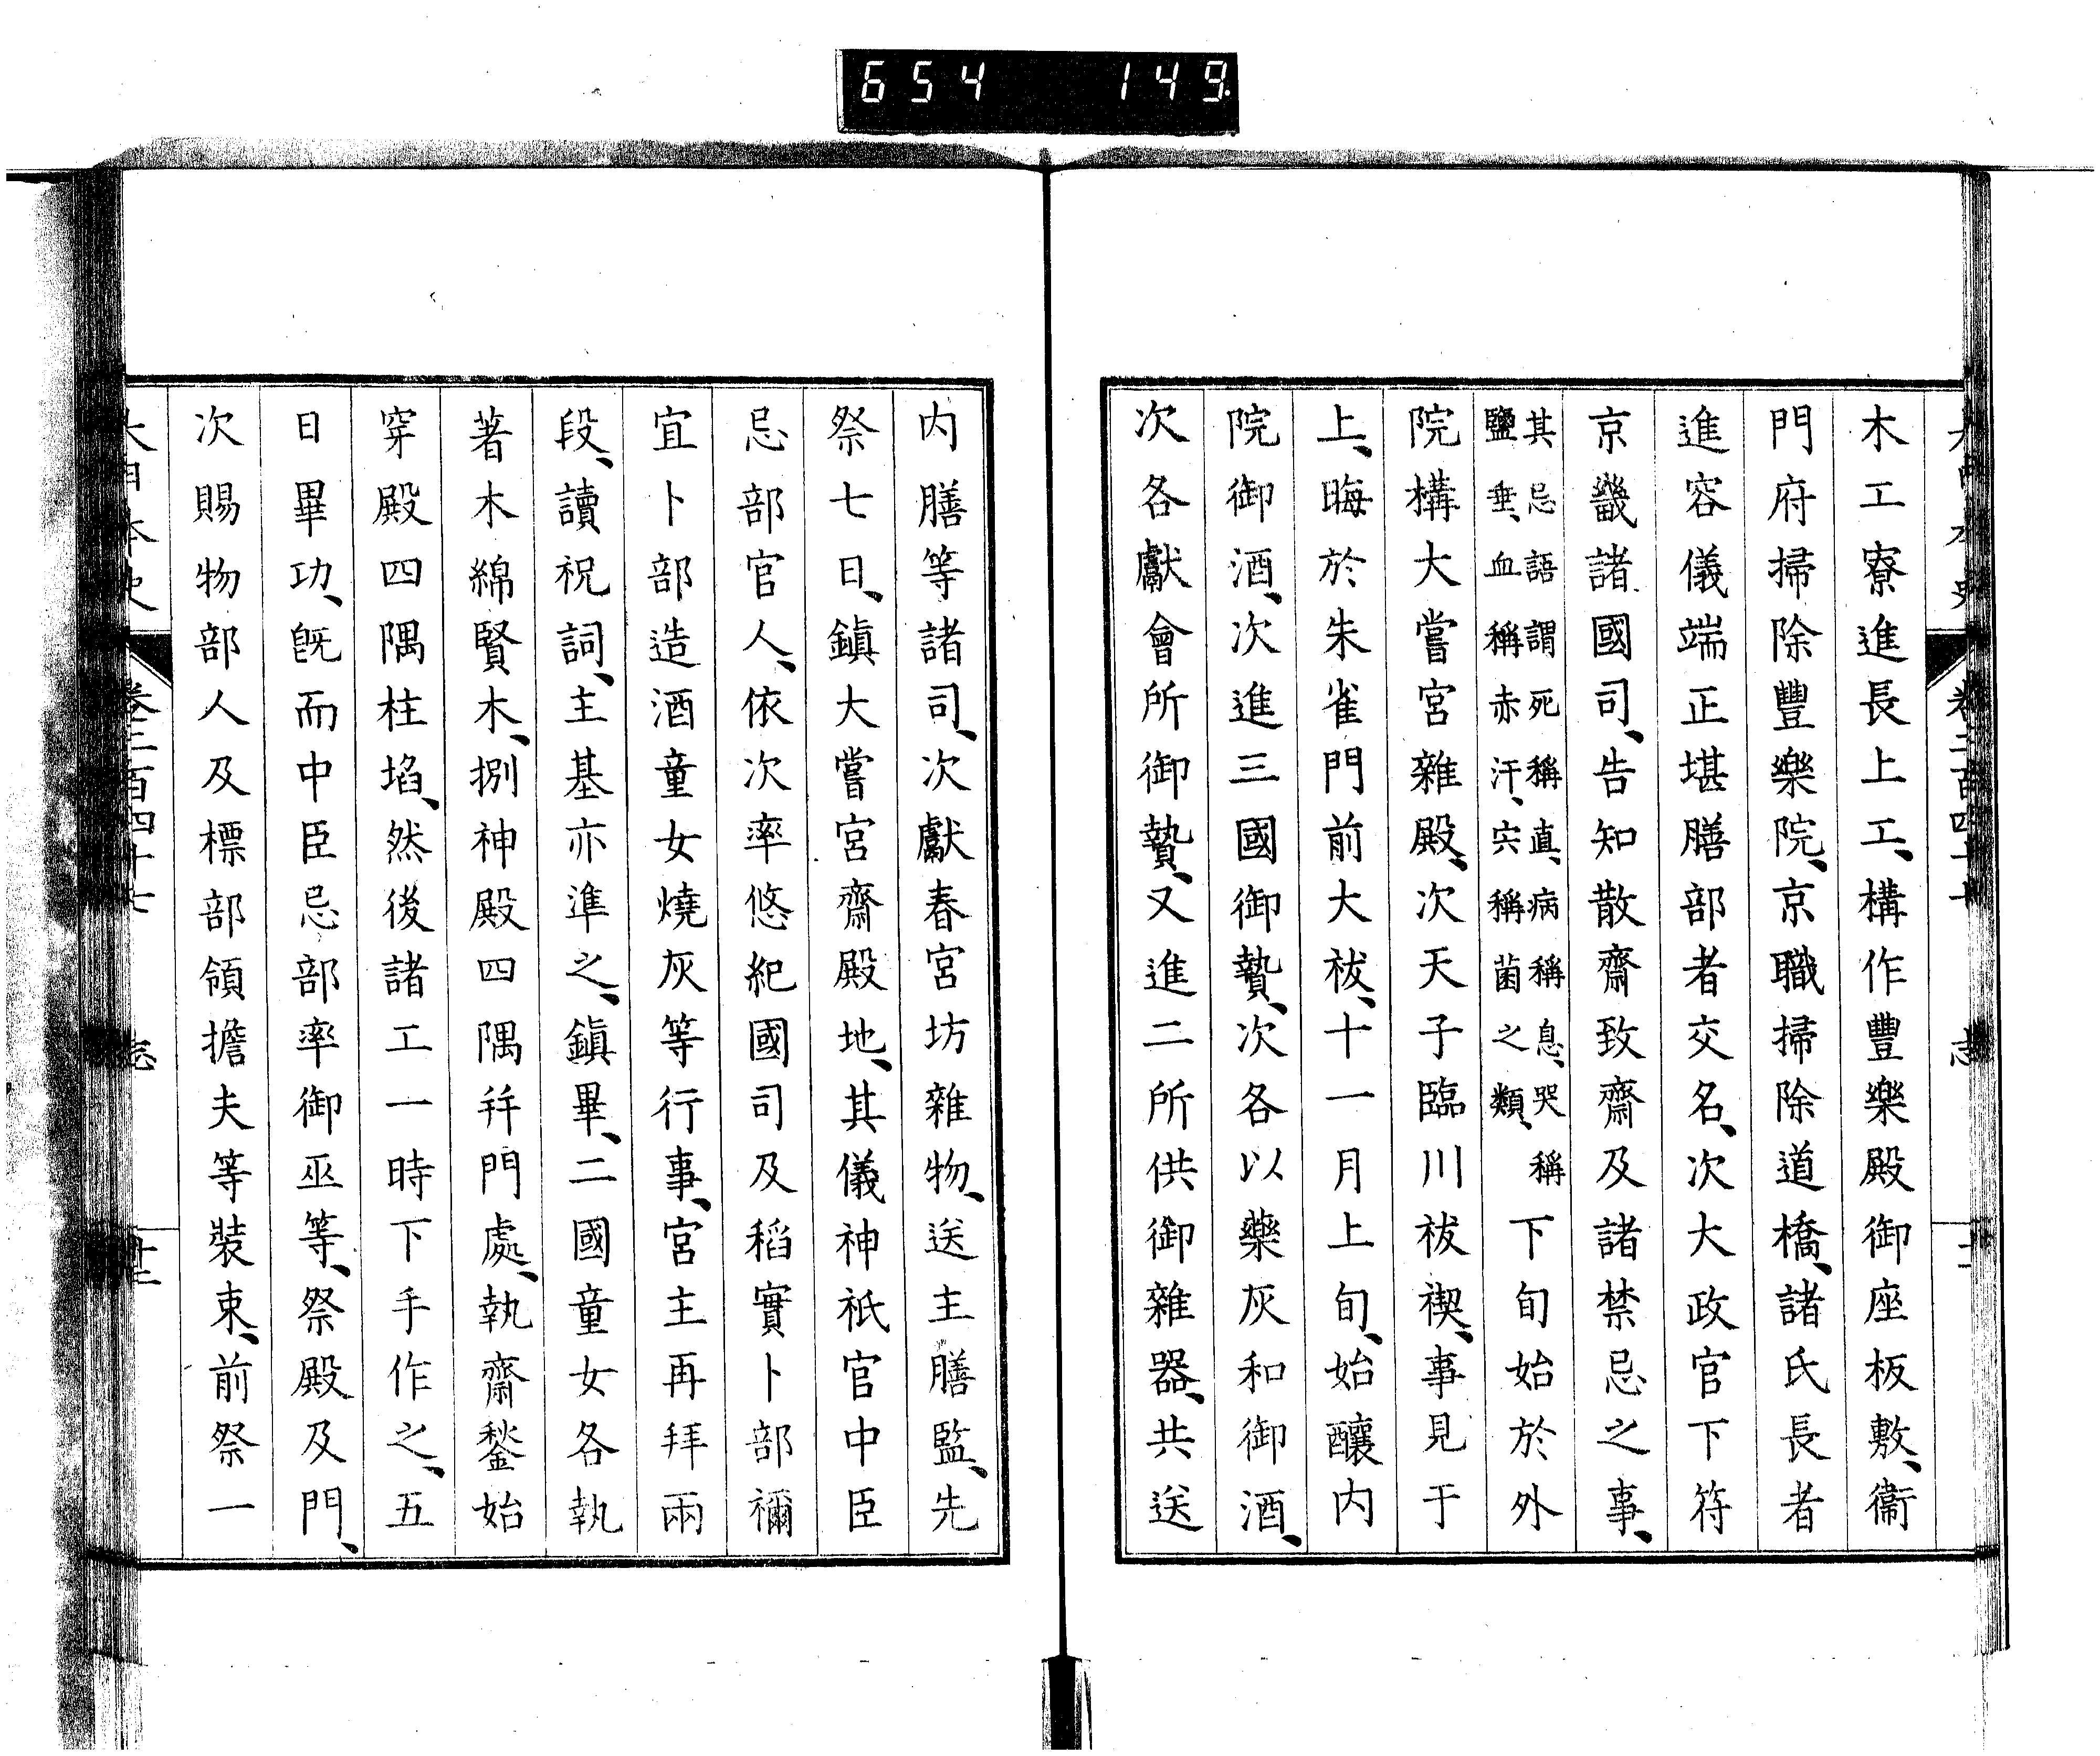 654 149
木工寮進長上工、構作豐樂殿御座板敷、衞
門府掃除豐樂院、京職掃除道橋、諸氏長者
進容儀端正堪膳部者交名、次大政官下符
京畿諸國司、告知散齋致齋及諸禁忌之事、
其忌語謂死稱直、病稱息、哭稱
鹽垂、血稱赤汗、宍稱菌之類、
下旬始於外
院構大嘗宮雜殿、次天子臨川祓禊、事見于
上、晦於朱雀門前大祓、十一月上旬、始釀内
院御酒、次進三國御贄、次各以藥灰和御酒、
次各獻會所御贄、又進二所供御雜器、共送
内膳等諸司、次獻春宮坊雜物、送主膳監、先
祭七日、鎭大嘗宮齋殿地、其儀神祇官中臣
忌部官人、依次率悠紀國司及稻實卜部禰
宜卜部造酒童女燒灰等行事、宮主再拜兩
段、讀祝詞、主基亦準之、鎭畢、二國童女各執
著木綿賢木、捌神殿四隅幷門處、執齋鍫始
穿殿四隅柱埳、然後諸工一時下手作之、五
日畢功、旣而中臣忌部率御巫等、祭殿及門、
次賜物部人及標部領擔夫等裝束、前祭一
大日本史 卷三百四十七 志